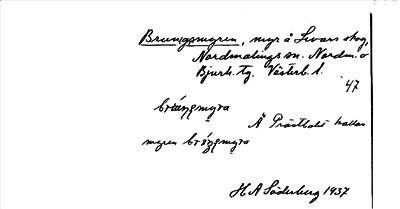 Brumgsmyren, myr å Levars skog,
Nordmalings sn. Nordm. o
Bjurh. tg. Västerb. l.
47
bräŋsmyra
Å Prästbolet kallas
myren bräŋsmyra
H A Söderberg 1937